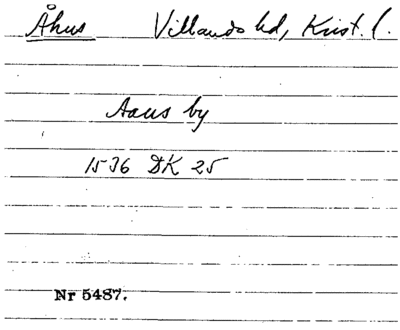 Åhus Villands hd, Krist. l.
Aaus by
1536 DK 25
Nr 5487.